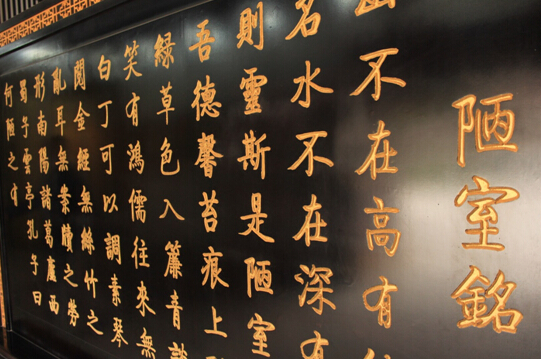 陋室銘
山不在高有
名水不在深有
則靈斯是陋室
吾德馨苔痕上
綠草色入簾青談
笑有鴻儒往來無
白丁可以調素琴
閱金經無絲竹之
亂耳無案牘之勞
形南陽諸葛廬西
蜀子雲亭孔子曰
何陋之有